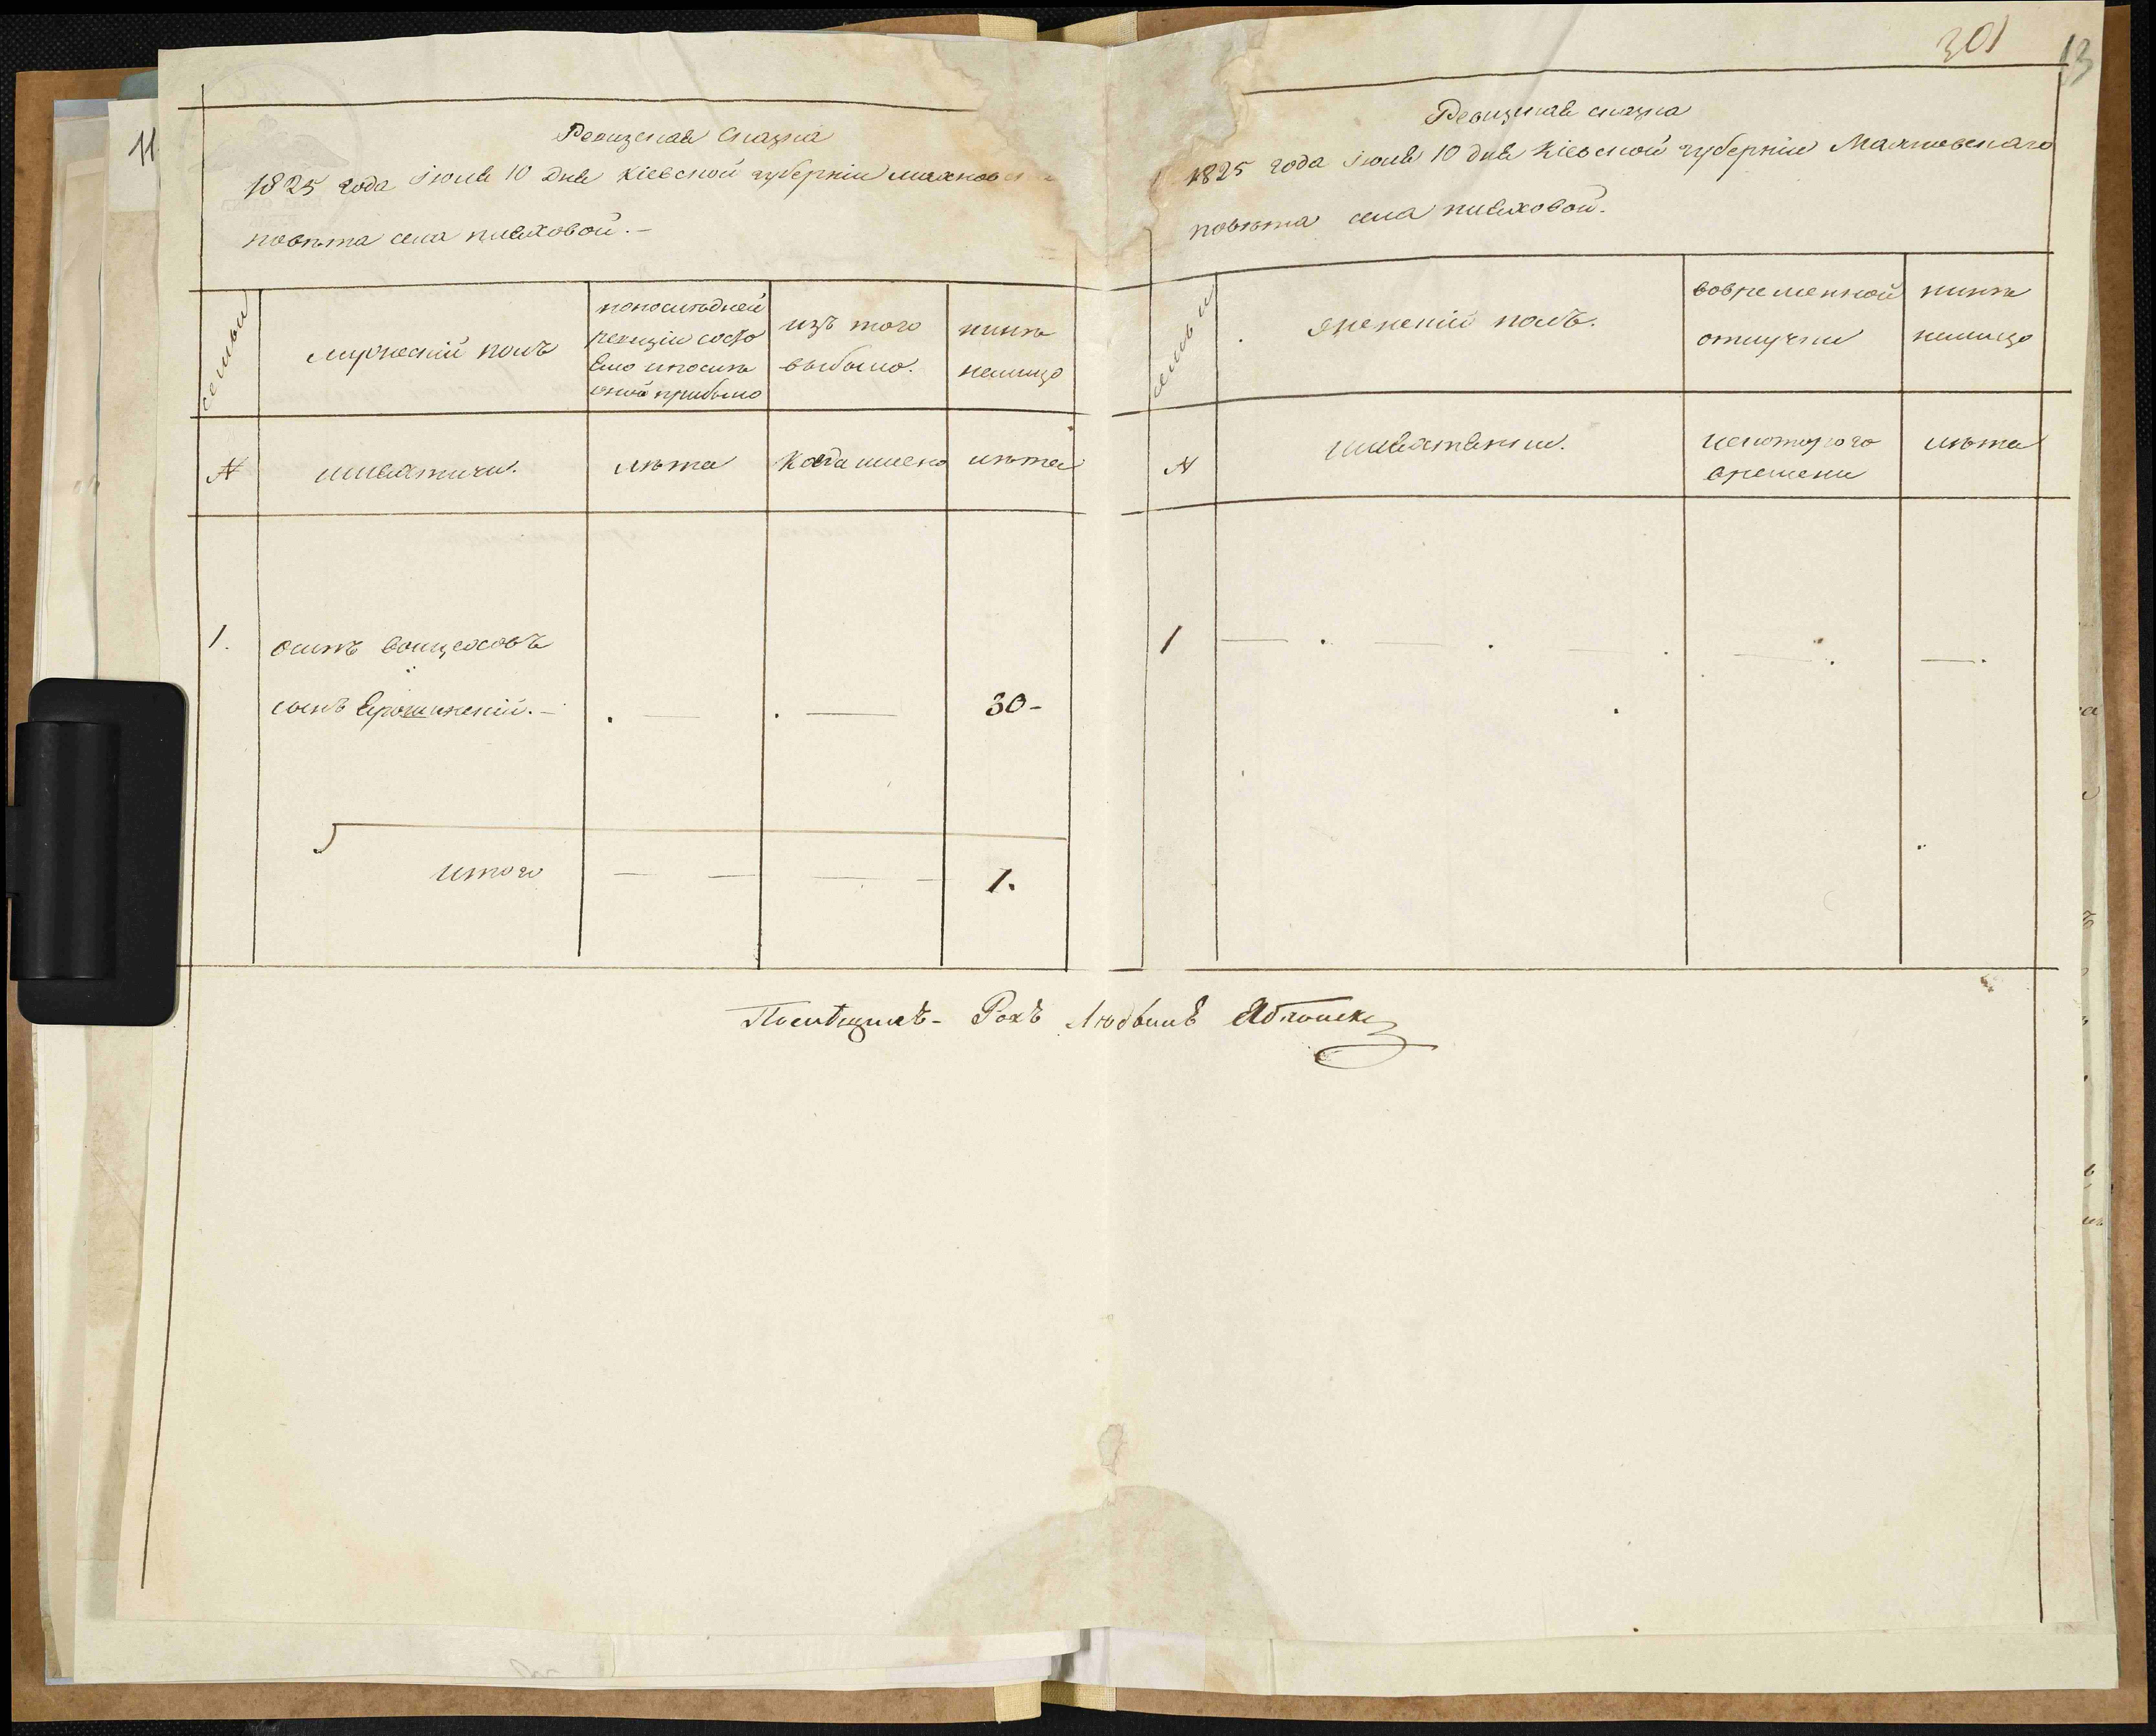 301
13
11
Ревизская Сказка
1825 года Июня 10 дня Кіевской губерніи махновс
повѣта села пляховой.-
семьи
мужескій полъ
попослѣдней
ревизіи состо
яло ипослѣ
оной прибыло
изъ того
выбыло.
нинѣ
налицо
№
шляхтичи.
лѣта
Когда имено
лѣта
1.
осипъ войцеховъ
сынъ
30-
итого
1.
Ревизская сказка
1825 года Июня 10 дня Кіевской губерніи Махновскаго
повѣта села пляховой.
семьи
женскій полъ.
вовременной
отлучки
нинѣ
налицо
№
шляхтянки.
искоторого
времени
лѣта
1
Рохъ Людвиковъ Яблонски